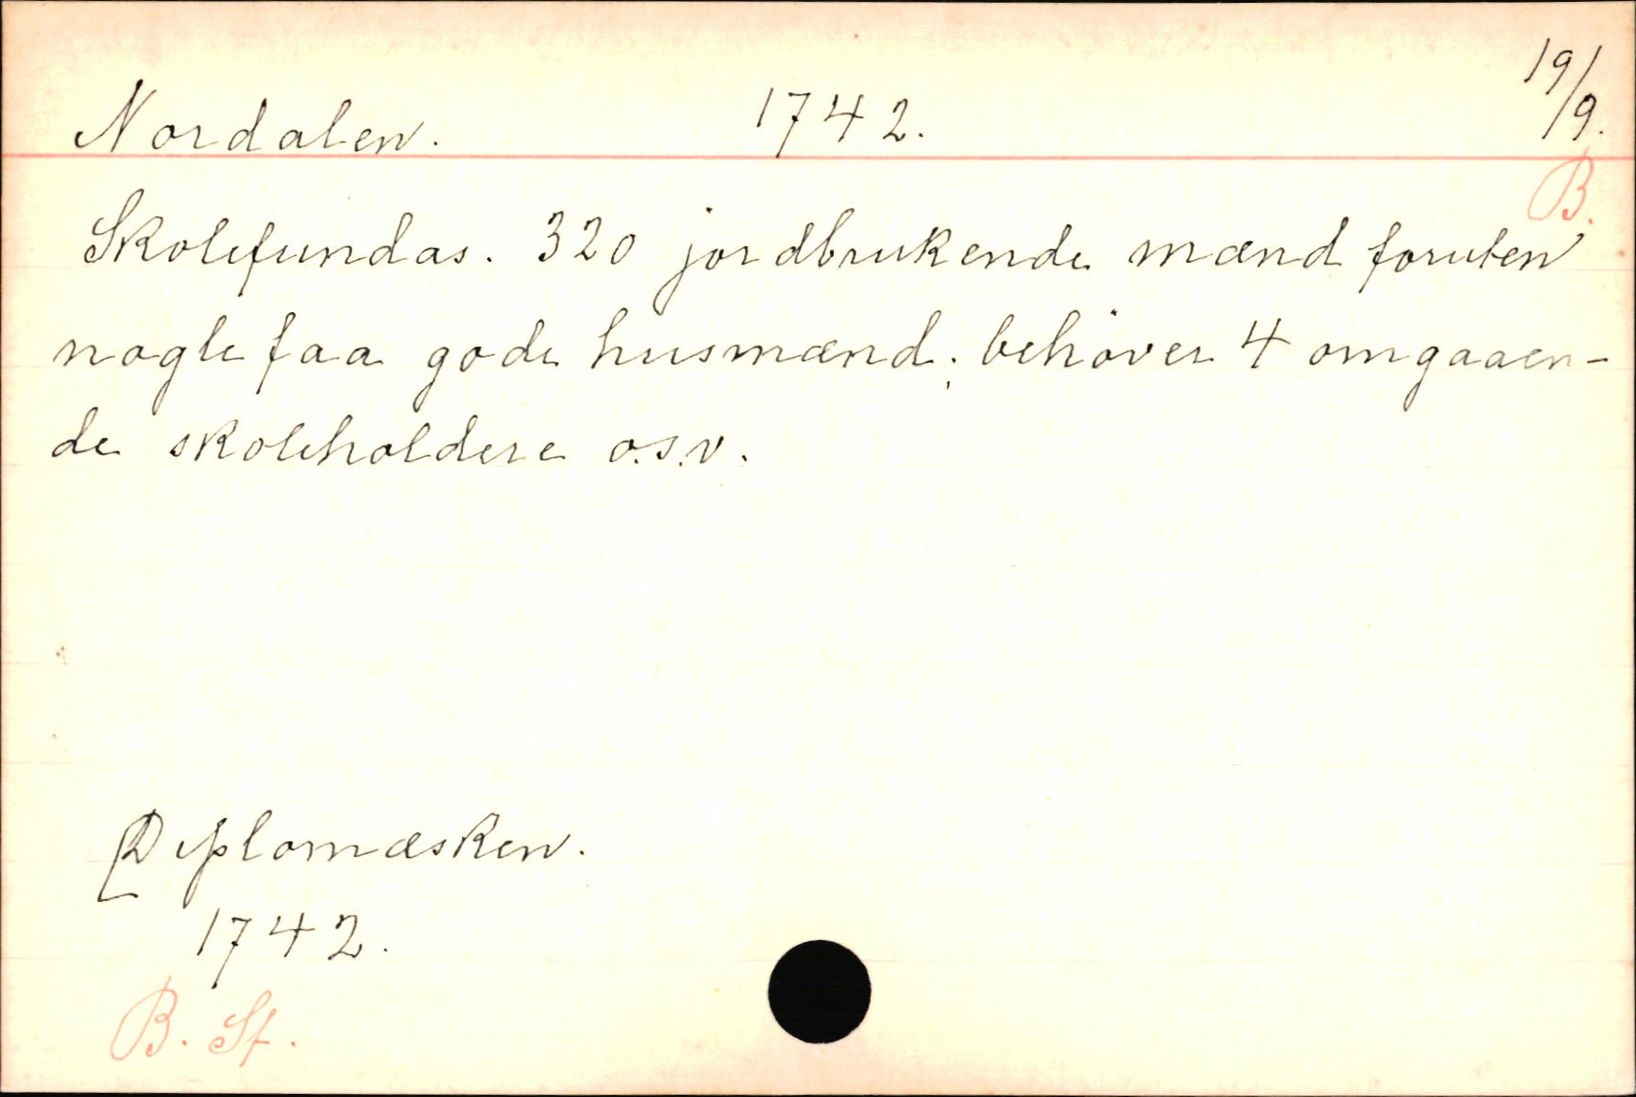 Nordalen. 1742. 19/9.
B.
Skolefundas. 320 jordbrukende mænd foruten
nogle faa gode husmænd; behøver 4 omgaaen-
de skoleholdere o.s.v.
Diplomæsken.
1742.
B. St.